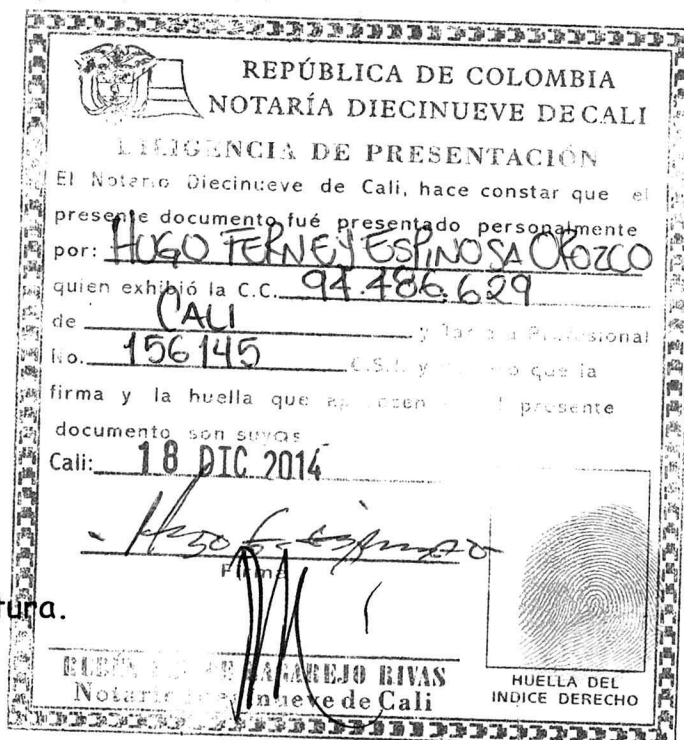 REPÚBLICA DE COLOMBIA
NOTARÍA DIECINUEVE DE CALI
DILIGENCIA DE PRESENTACIÓN
El Notario Diecinueve de Cali, hace constar que el
presente documento fué presentado personalmente
por: HUGO FERNEY ESPINOSA OROZCO
quien exhibió la C.C. 94.486.629
de CALI y Profesional
No. 156145 C.S.J. y que la
firma y la huella que presente
documento son suyas
Cali: 18 DIC 2014
Hugo F. Espinosa O
Firma
tura.
RIVAS
Notario Diecinueve de Cali
HUELLA DEL
INDICE DERECHO